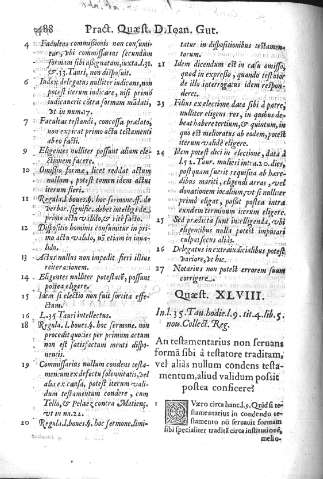 488 Pract. Quæst. D. Ioan. Gut.
4 Facultas commissionis non consumitur,
formam sibi assignatam, iuxta d. 31.
& 13. Tauri, non disposuit.
6 Index delegatus nulliter iudicans, non
potest iterum iudicare, nisi primò
iudicauerit citra formam mãdati,
vt in num. 17.
7 Facultas testandi, concessa prælato,
non expirat primo actu testamenti
ab eo facti.
9 Eligentes nulliter possunt aliam electionem
facere.
10 Omissa forma, licet reddat actum
nullum, potest tamen idem actus
iterum fieri.
11 Regula l. boues. §. hoc sermone. ff. de
verbor. signific. debet intelligi de
primo actu valido, & nõ facto.
12 Dispositio hominis consumitur in primo
actu valido, nõ etiam in inualido.
13 Actus nullus non impedit fieri illius
reiterationem.
14 Eligentes nulliter potestatẽ, possunt
postea eligere.
15 Idem si electio non fuit sortita effectum.
16 L. 35. Tauri intellectus.
18 Regula l. boues. §. hoc sermone, non
procedit quoties per primum actum
non est satisfactum menti disponentis.
19 Commissarios nullum condens testamentum
ex defectu solemnitatis, vel
alia ex causa, potest iterum validum
testamentum condere, cum
Tello, & Pelaez contra Matienç.
vt in nu. 22.
20 Regula l. boues. §. hoc sermone, limitatur
in dispositionibus testamentorum.
21 Idem dicendum est in casu omisso,
quod in expresso, quando testator
de illo interrogatus idem responderet.
23 Filius ex electione data sibi à patre,
nulliter eligens res, in quibus debeat
habere tertium, & quintum, in
quo est melioratus ab eodem, potest
iterum validè eligere.
24 Idem potest dici in electione, data à
l. 52. Tour. mulieri intra 20. dies,
postquam fuerit requisita ab hæredibus
mariti, eligendi arras, vel
donationem iocalium, vt si nulliter
primò eligat, possit postea intra
eundem terminum iterum eligere.
25 Sed prædicta sunt intelligenda, vbi
eligentibus nulla potest imponi
culpa scelus aliis.
26 Delegatus in extraiudicialibus potest
variare, &c.
27 Notarius non potest errorem suum
corrigere.
Quæst. XLVIII.
In l. 35. Tau. hodie l. 9. tit. 4. lib. 5.
nou. Collect. Reg.
An testamentarius non seruans
formã sibi à testatore traditam,
vel aliàs nullum condens testamentum,
aliud validum possit
postea conficere?
1 QVæro circa hanc l. 9. Quid si testamentarius
in condendo testamento
nõ seruauit formam
sibi specialiter traditã circa institutionẽ,
melio-